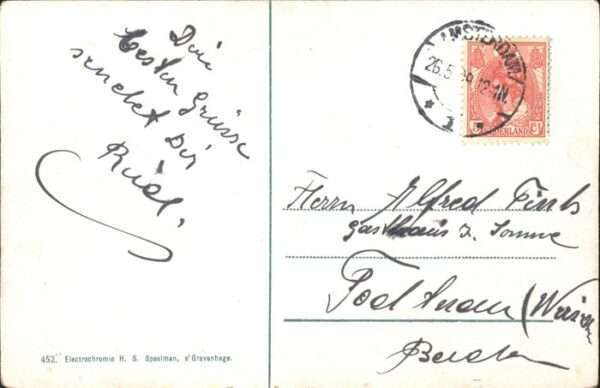 Die
besten Grüsse
sendet Dir
Rudl.
AMSTERDAM
26.5
12-1N.
1
NEDERLAND
Herrn Alfred
Gasthaus z. Sonne
Todtnau (Wiesen
Baden
452. Electrochromie H. S. Speelman, s'Gravenhage.